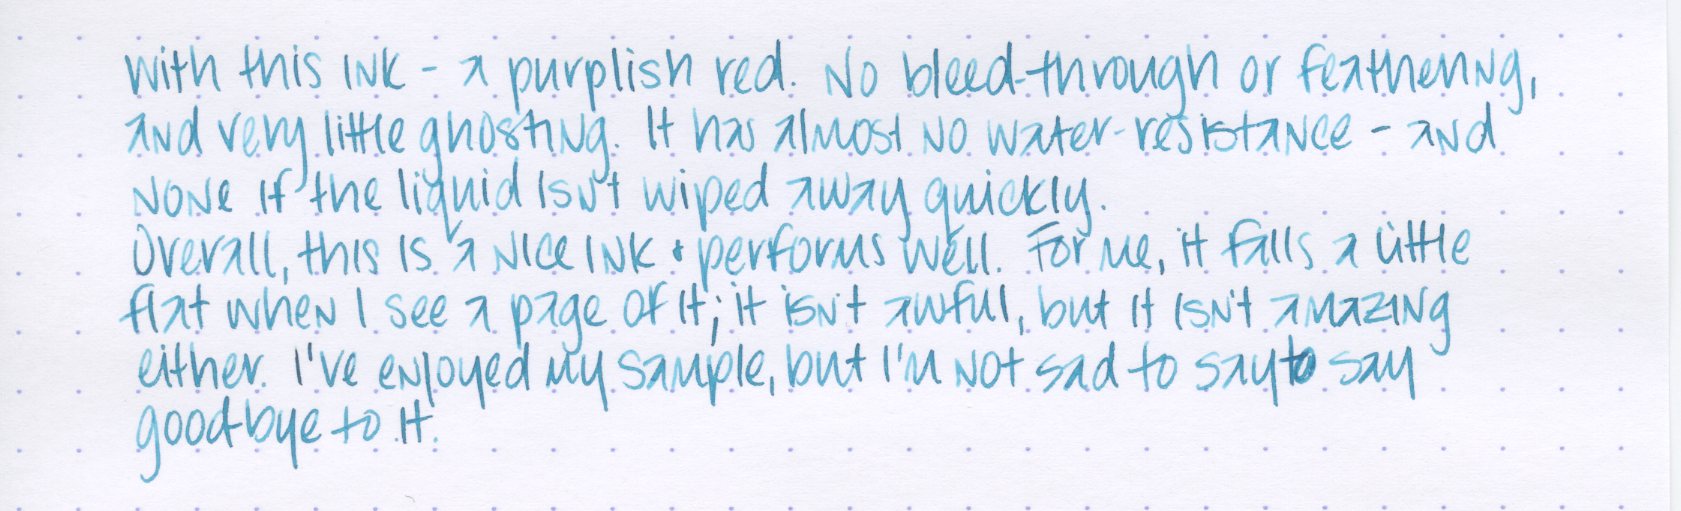 with this ink - a purplish red. No bleed-through or feathering,
and very little ghosting. It has almost no water-resistance - and
none if the liquid isn't wiped away quickly.
Overall, this is a nice ink & performs well. For me, it falls a little
flat when I see a page of it; it isn't awful, but it isn't amazing
either. I've enjoyed my sample, but I'm not sad to say to say
goodbye to it.